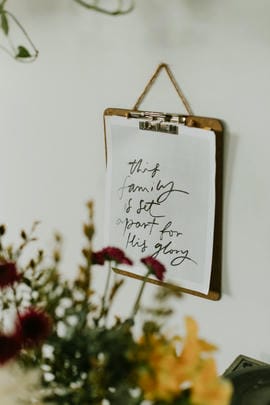 this
family
is set
apart for
His glory